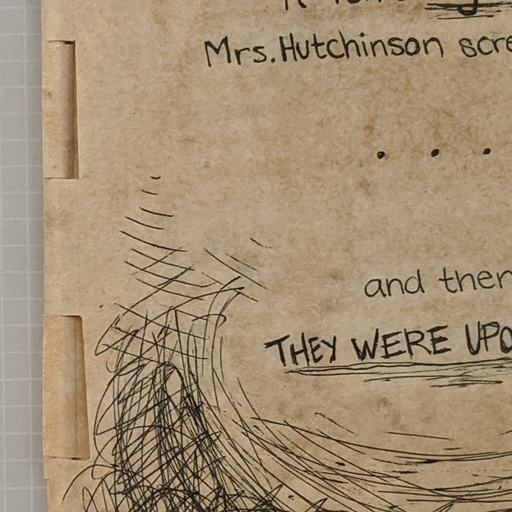 Mrs. Hutchinson scre
. . .
and then
THEY WERE UPO